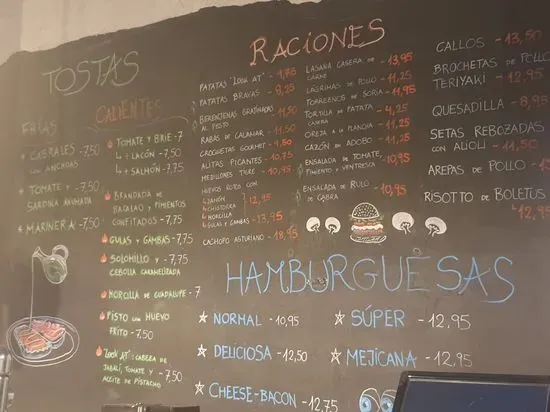 TOSTAS
FRÍAS
* CABRALES - 7,50
CON ANCHOAS
* TOMATE Y - 7,50
SARDINA AHUMADA
* MARINERA - 7,50
CALIENTES
TOMATE Y BRIE - 7
↳ + LACÓN - 7,50
↳ + SALMÓN - 7,75
BRANDADA DE
BACALAO Y PIMIENTOS
CONFITADOS - 7,75
GULAS Y GAMBAS - 7,75
SOLOMILLO Y - 7,75
CEBOLLA CARAMELIZADA
MORCILLA DE GUADALUPE - 7
PISTO CON HUEVO
FRITO - 7,50
"ZOOK AT": CABEZA DE
JABALÍ, TOMATE Y - 7,50
ACEITE DE PISTACHO
RACIONES
PATATAS "ZOOK AT" - 9,75
PATATAS BRAVAS - 8,25
BERENJENAS GRATINADAS - 11,50
AL PESTO
RABAS DE CALAMAR - 11,50
CROQUETAS GOURMET - 9,50
ALITAS PICANTES - 10,75
MEJILLONES TIGRE - 10,95
HUEVOS ROTOS CON
↳ JAMÓN
↳ CHISTORRA - 12,95
↳ MORCILLA
↳ GULAS Y GAMBAS - 13,95
CACHOPO ASTURIANO - 18,95
LASAÑA CASERA DE - 13,95
CARNE
LÁGRIMAS DE POLLO - 11,25
TORREZNOS DE SORIA - 11,95
TORTILLA DE PATATA - 4,25
CARRERA
OREJA A LA PLANCHA - 11,25
CAZÓN EN ADOBO - 11,25
ENSALADA DE TOMATE, - 10,95
PIMIENTO Y VENTRESCA
ENSALADA DE RULO - 10,95
DE CABRA
CALLOS - 13,50
BROCHETAS DE POLLO
TERIYAKI - 12,95
QUESADILLA - 8,95
SETAS REBOZADAS
CON ALIOLI - 11,50
AREPAS DE POLLO - 1
RISOTTO DE BOLETUS
12,95
HAMBURGUESAS
☆ NORMAL - 10,95
☆ DELICIOSA - 12,50
☆ CHEESE-BACON - 12,75
☆ SÚPER - 12,95
☆ MEJICANA - 12,95